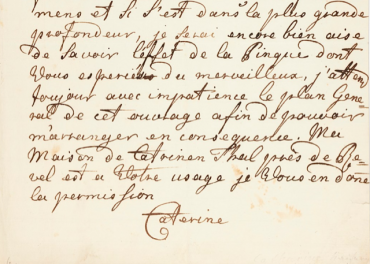 mens et si s'est dans la plus grande
profondeur, je serai encore bien aise
de savoir l'effet de la Pingue dont
Vous esperiés du merveilleux, j'attend
toujour avec impatience le plan Gene
ral de cet ouvrage afin de pouvoir
m'arranger en consequence. Ma
Maison de Catrinen Thal près de Re-
vel est a Votre usage je Vous en done
la permission
Caterine